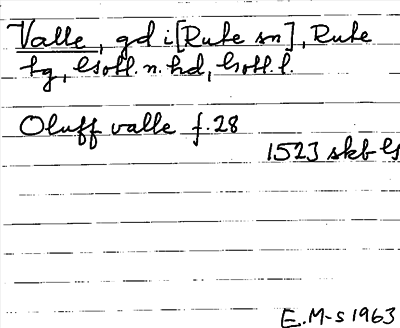 Valle, gd i [Rute sn], Rute
tg, Gotl. n. hd, Gotl. l.
Oluff valle f. 28
1523 skb
E.M-s 1963